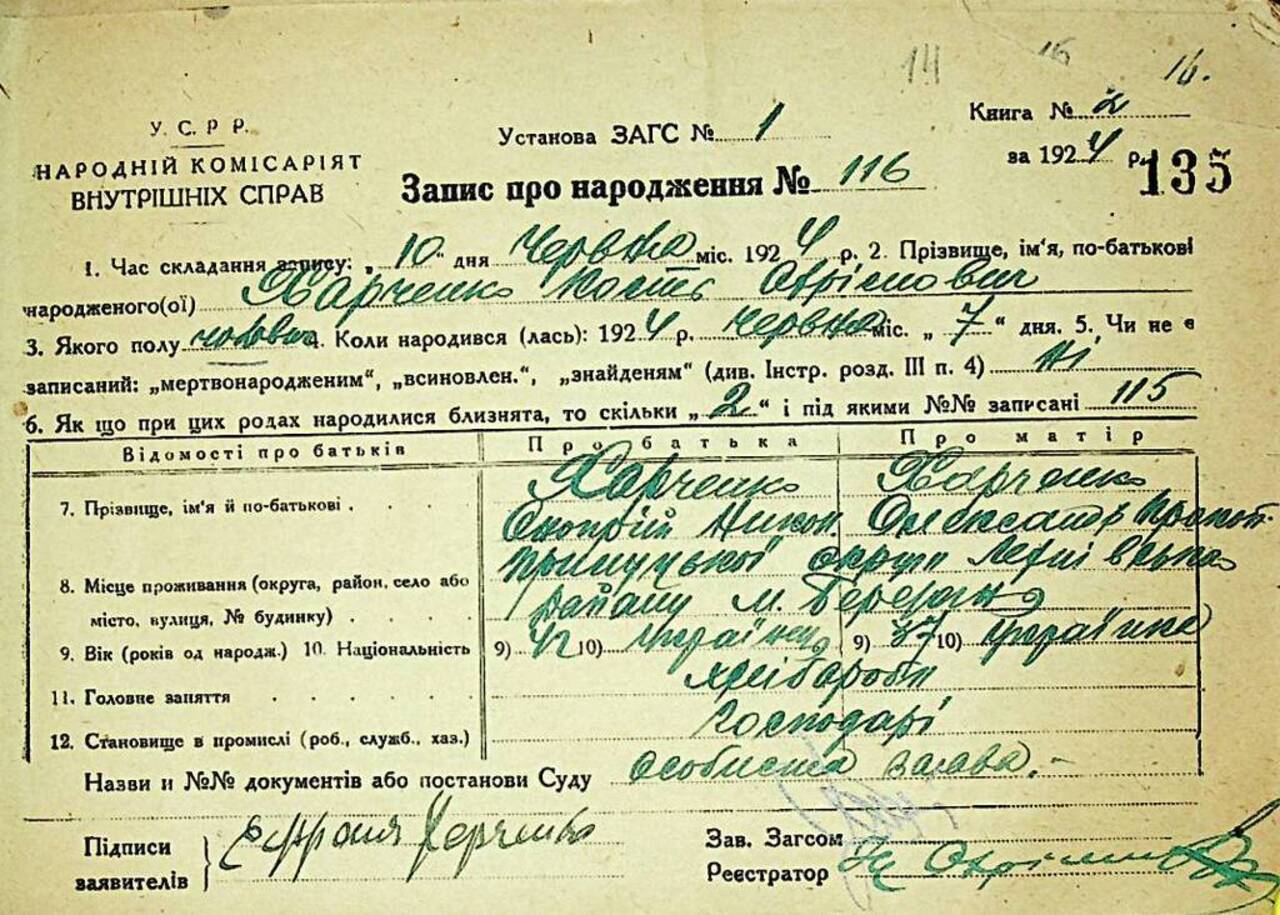 14 16 16.
У. С. Р Р.
НАРОДНІЙ КОМІСАРІЯТ
ВНУТРІШНІХ СПРАВ
Установа ЗАГС № 1
Книга № 2
за 1924 р.
135
Запис про народження № 116
1. Час складання запису: „ 10 " дня Червня міс. 1924 р. 2. Прізвище, ім'я, по-батькові
народженого(ої) Харченко Кость
3. Якого полу 4. Коли народився (лась): 1924 р. червня міс. „ 7 " дня. 5. Чи не є
записаний: „мертвонародженим", „всиновлен.", „знайденям" (див. Інстр. розд. III п. 4) Ні
6. Як що при цих родах народилися близнята, то скільки „ 2 " і під якими №№ записані 115
Відомості про батьків Про батька Про матір
7. Прізвище, ім'я й по-батькові . Харченко Харченко
Никон. Олександра Прокоп.
8. Місце проживання (округа, район, село або Прилуцької округи
місто, вулиця, № будинку) . району м. Березань
9. Вік (років од народж.) 10. Національність 9) 42 10) Українец 9) 37 10) українка
11. Головне заняття хлібароби
12. Становище в промислі (роб., служб., хаз.) господарі
Назви и №№ документів або постанови Суду особиста заява. -
Підписи
заявителів
Харченко
Зав. Загсом
Реєстратор